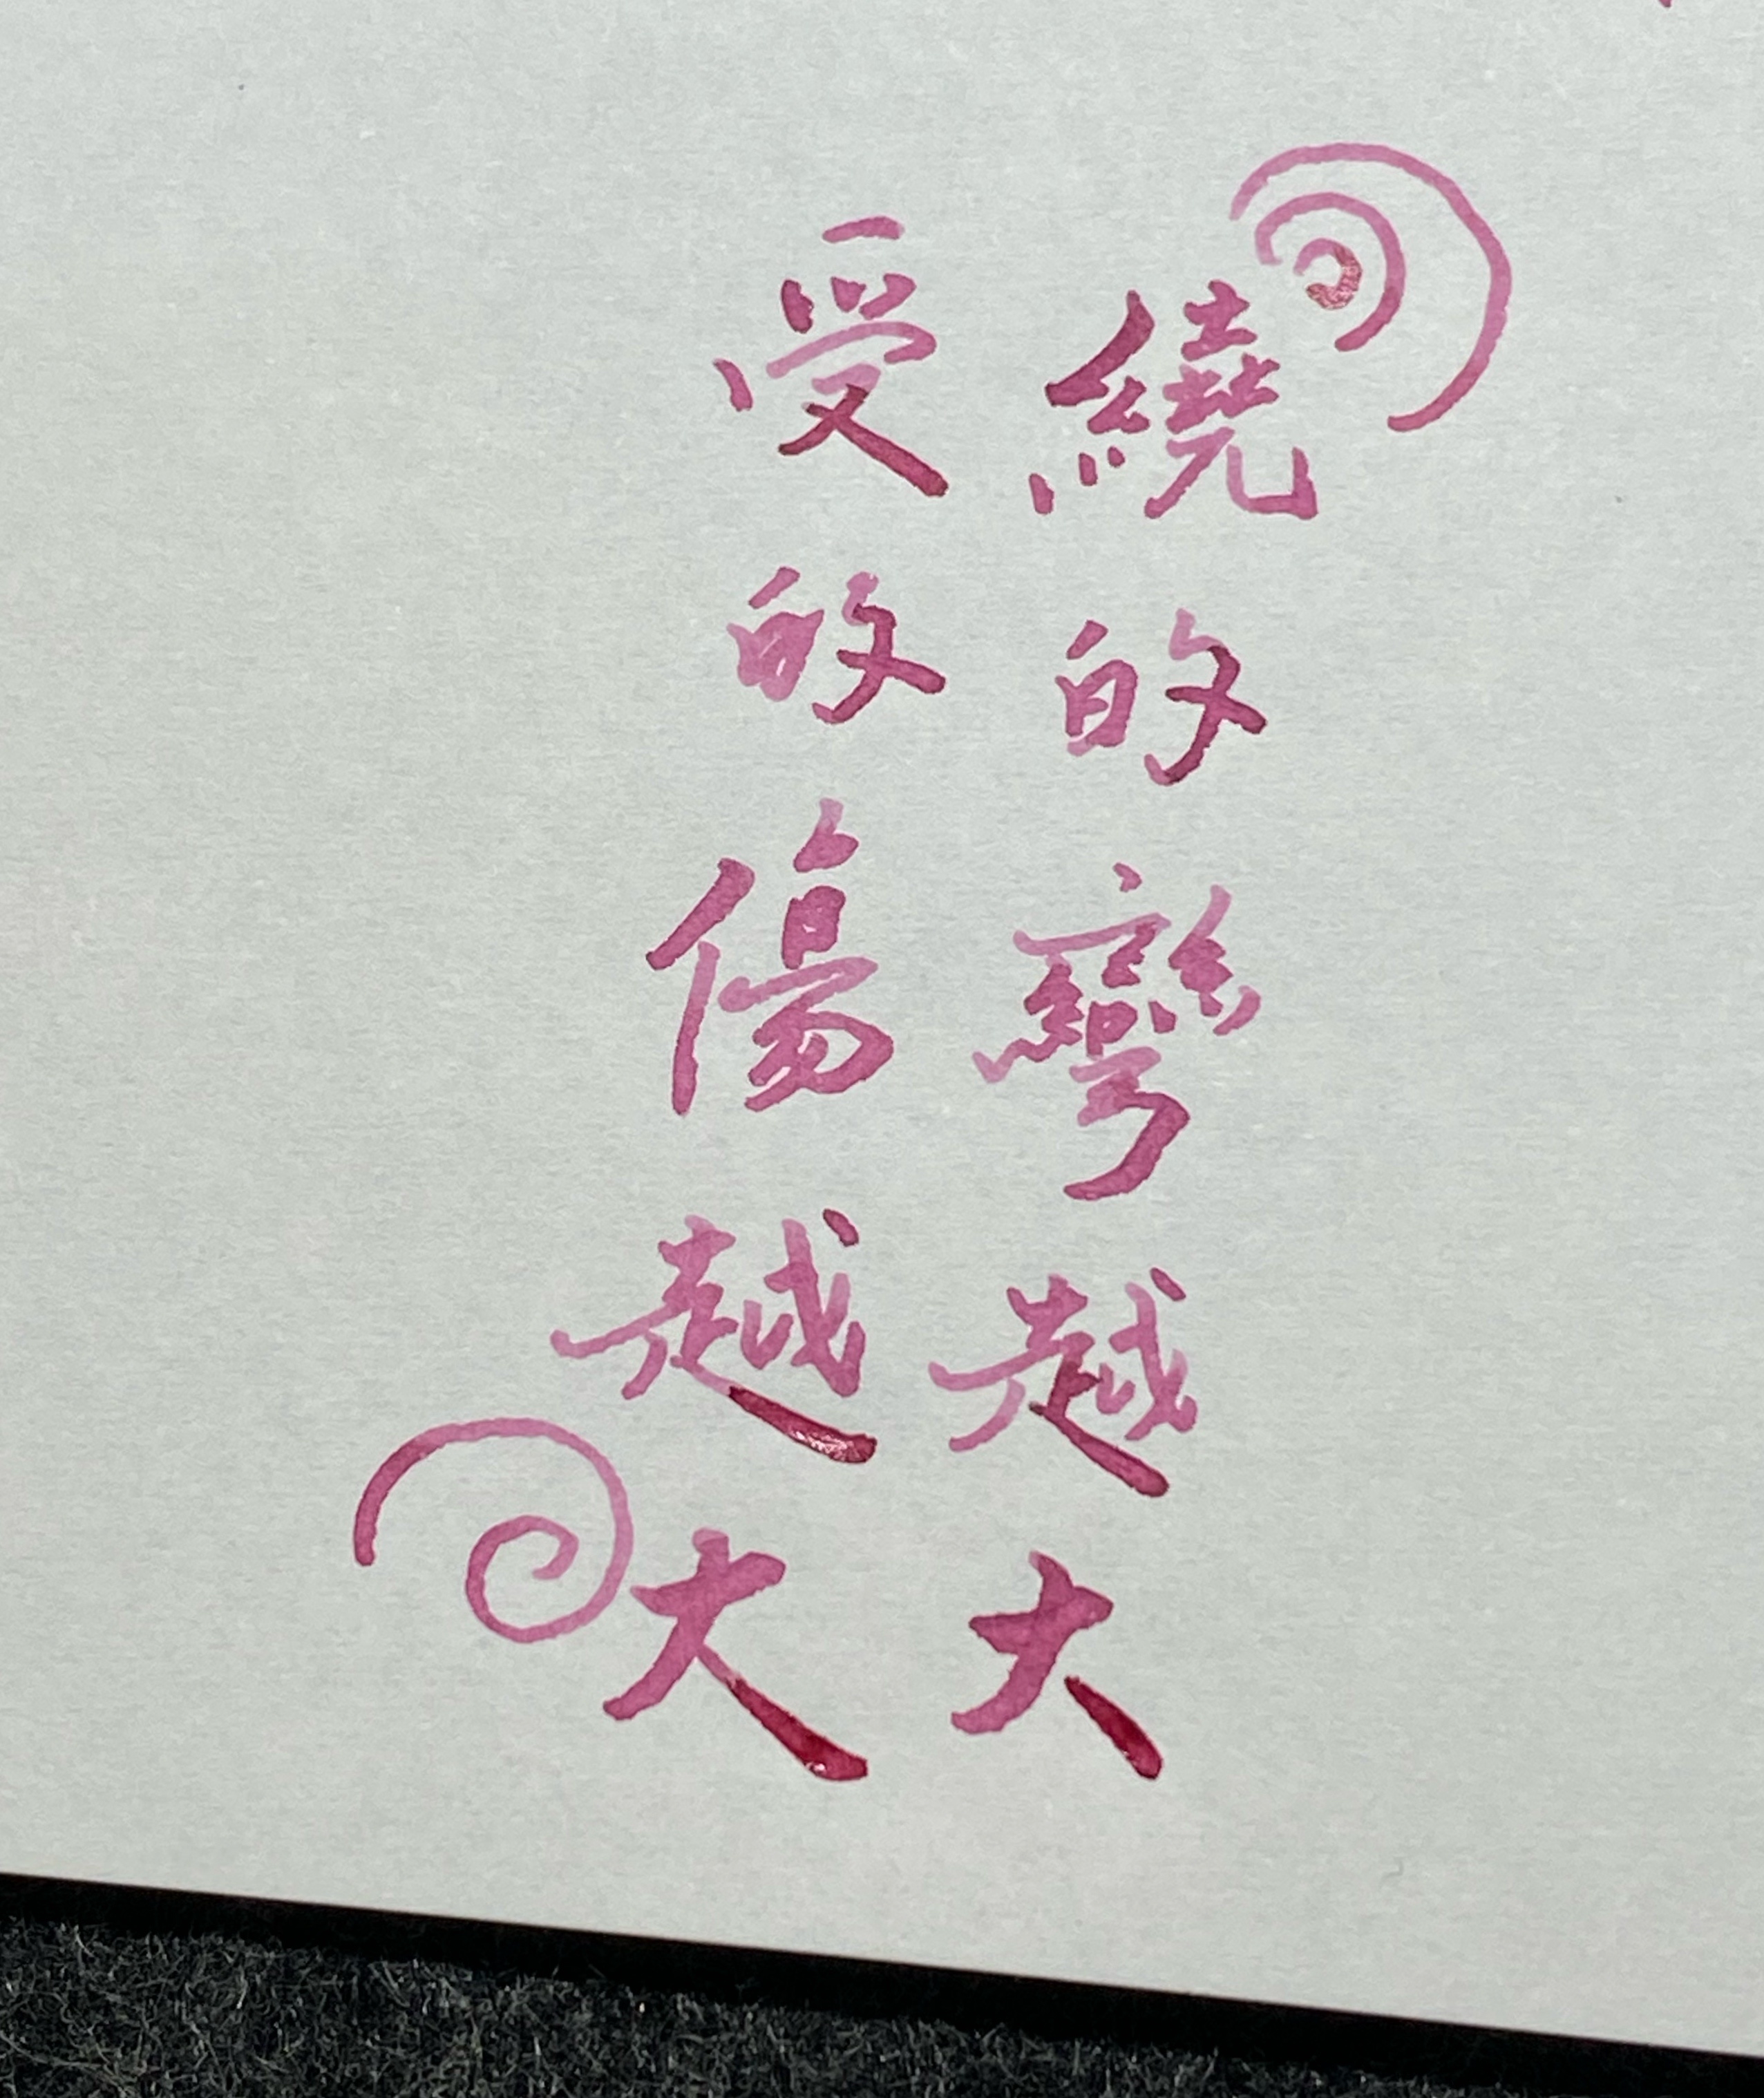 繞的彎越大
受的傷越大